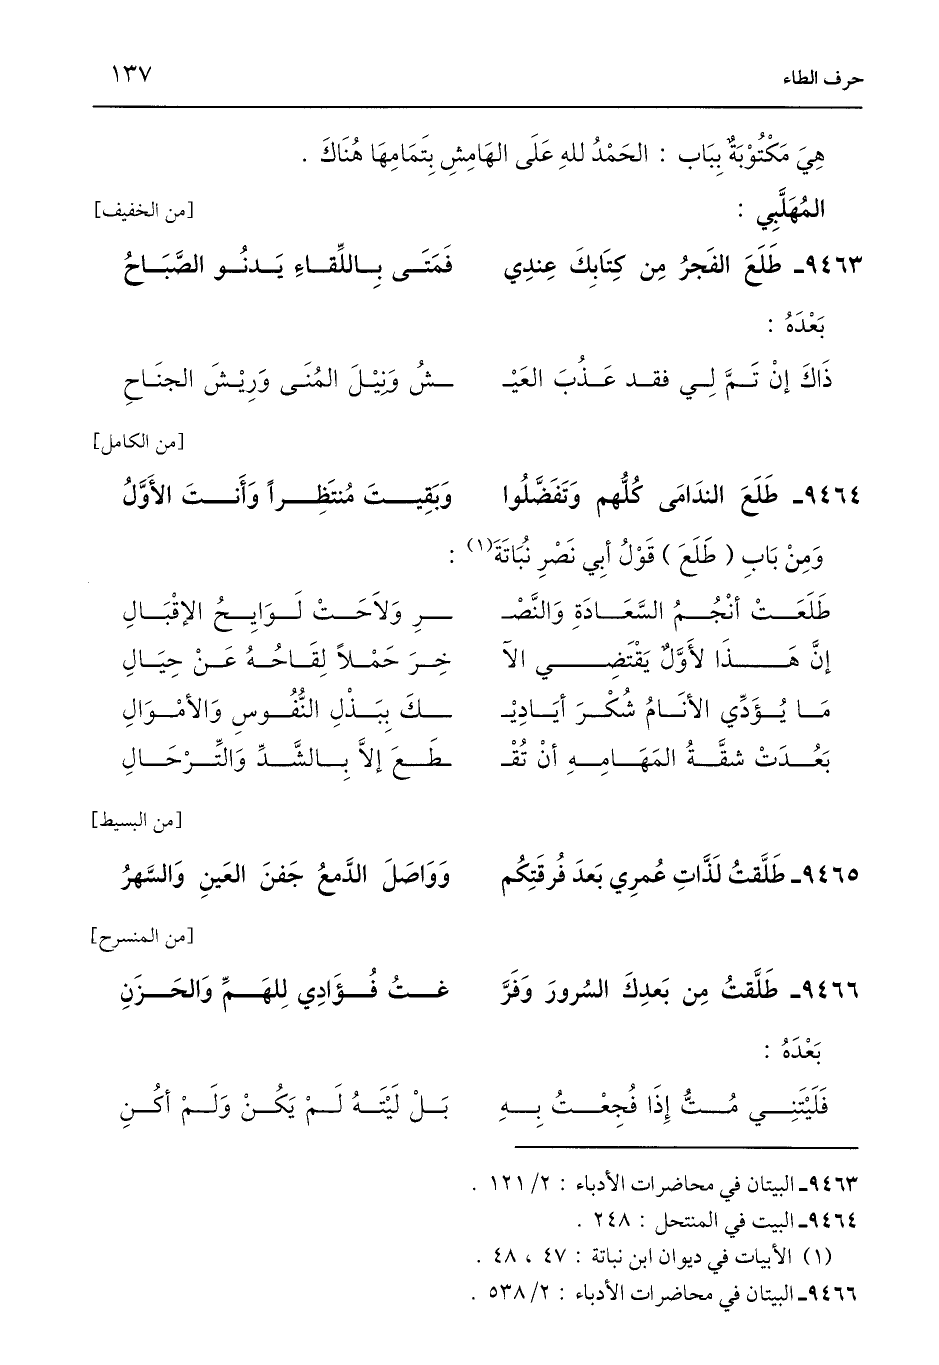 حرف الطاء ١٣٧
هِيَ مَكْتُوْبَةٌ بِبَابِ : الحَمْدُ للهِ عَلَى الهَامِشِ بِتَمَامِهَا هُنَاكَ .
المُهَلَّبِي : [من الخفيف]
٩٤٦٣ـ طَلَعَ الفَجرُ مِن كِتَابِكَ عِندِي فَمَتَى بِاللِّقَاءِ يَدنُو الصَّبَاحُ
بَعْدَهُ :
ذَاكَ إنْ تَمَّ لِي فقد عَذُبَ العَيْـ ـشُ وَنِيْلَ المُنَى وَرِيْشَ الجنَاحِ
[من الكامل]
٩٤٦٤ـ طَلَعَ الندَامَى كُلُّهم وَتَفَضَّلُوا وَبَقِيتَ مُنتَظِراً وَأَنتَ الأَوَّلُ
وَمِنْ بَابِ ( طَلَعَ ) قَوْلُ أبي نَصْرِ نُبَاتَةَ(١) :
طَلَعَتْ أنْجُمُ السَّعَادَةِ وَالنَّصْـ ـرِ وَلاَحَتْ لَوَايِحُ الإقْبَالِ
إنَّ هَذَا لأوَّلٌ يَقْتَضِي الآ خِرَ حَمْلاً لِقَاحُهُ عَنْ حِيَالِ
مَا يُؤَدِّي الأنَامُ شُكْرَ أيَادِيْـ ـكَ بِبَذْلِ النُّفُوسِ وَالأمْوَالِ
بَعُدَتْ شقَّةُ المَهَامِهِ أنْ تُقْـ ـطَعَ إلاَّ بِالشَّدِّ وَالتِّرْحَالِ
[من البسيط]
٩٤٦٥ـ طَلَّقتُ لَذَّاتِ عُمرِي بَعدَ فُرقَتِكُم وَوَاصَلَ الدَّمعُ جَفنَ العَينِ وَالسَّهرُ
[من المنسرح]
٩٤٦٦ـ طَلَّقتُ مِن بَعدِكَ السُرورَ وَفَرَّ غتُ فُؤَادِي لِلهَمِّ وَالحَزَنِ
بَعْدَهُ :
فَلَيْتَنِي مُتُّ إذَا فُجِعْتُ بِهِ بَلْ لَيْتَهُ لَمْ يَكُنْ وَلَمْ أكُنِ
٩٤٦٣ـ البيتان في محاضرات الأدباء : ٢/ ١٢١ .
٩٤٦٤ـ البيت في المنتحل : ٢٤٨ .
(١) الأبيات في ديوان ابن نباتة : ٤٧ ، ٤٨ .
٩٤٦٦ـ البيتان في محاضرات الأدباء : ٢/ ٥٣٨ .